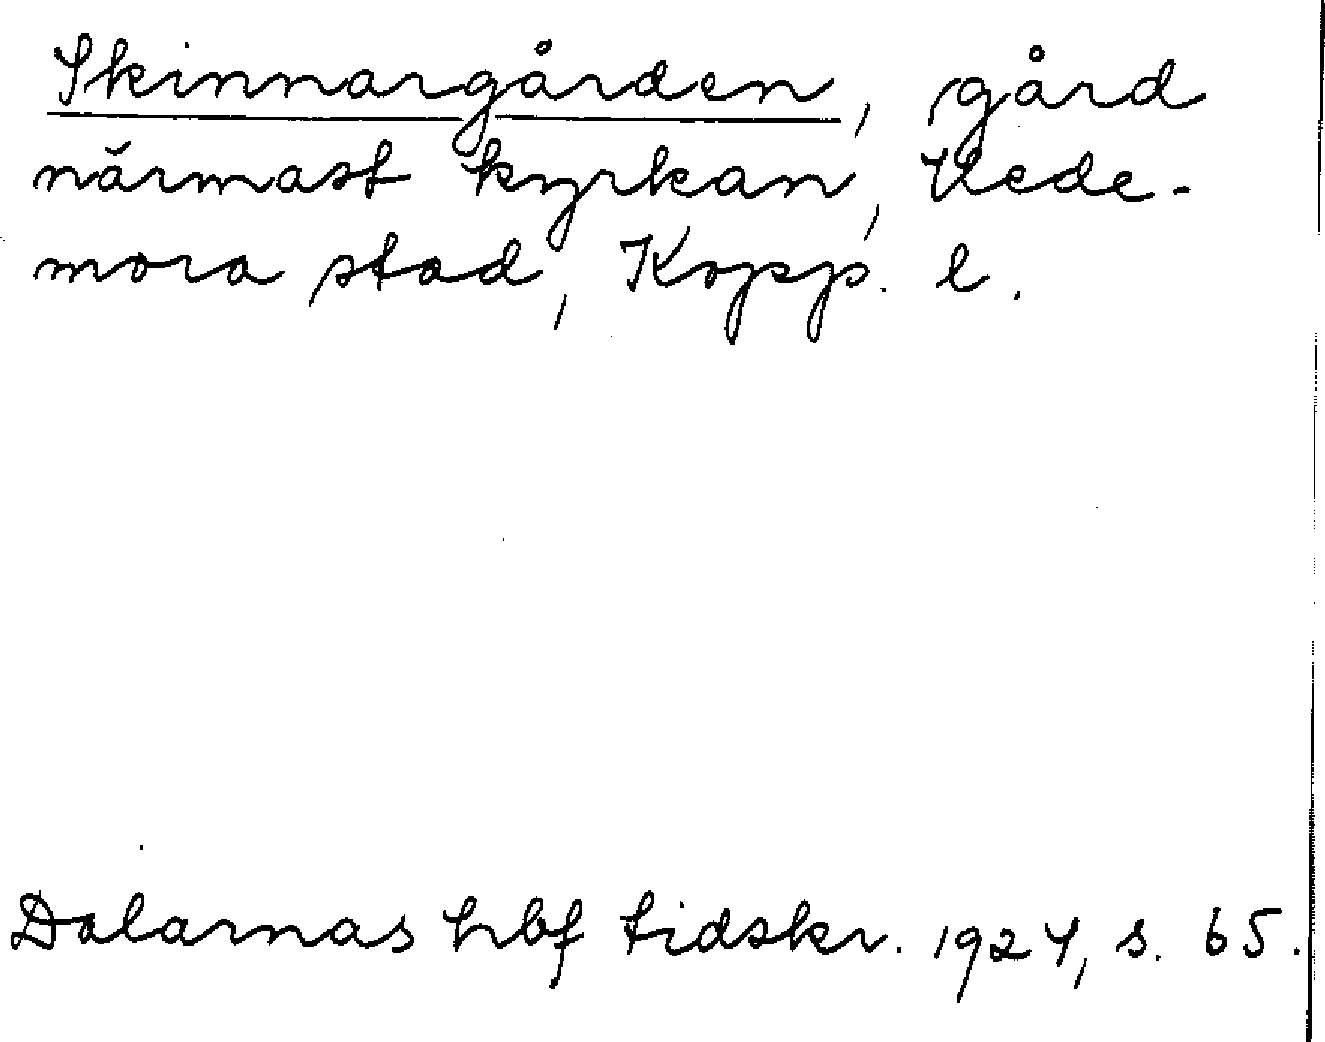 Skinnargården, gård
närmast kyrkan, Hede-
mora stad, Kopp. l.
Dalarnas hbf tidskr. 1924, s. 65.